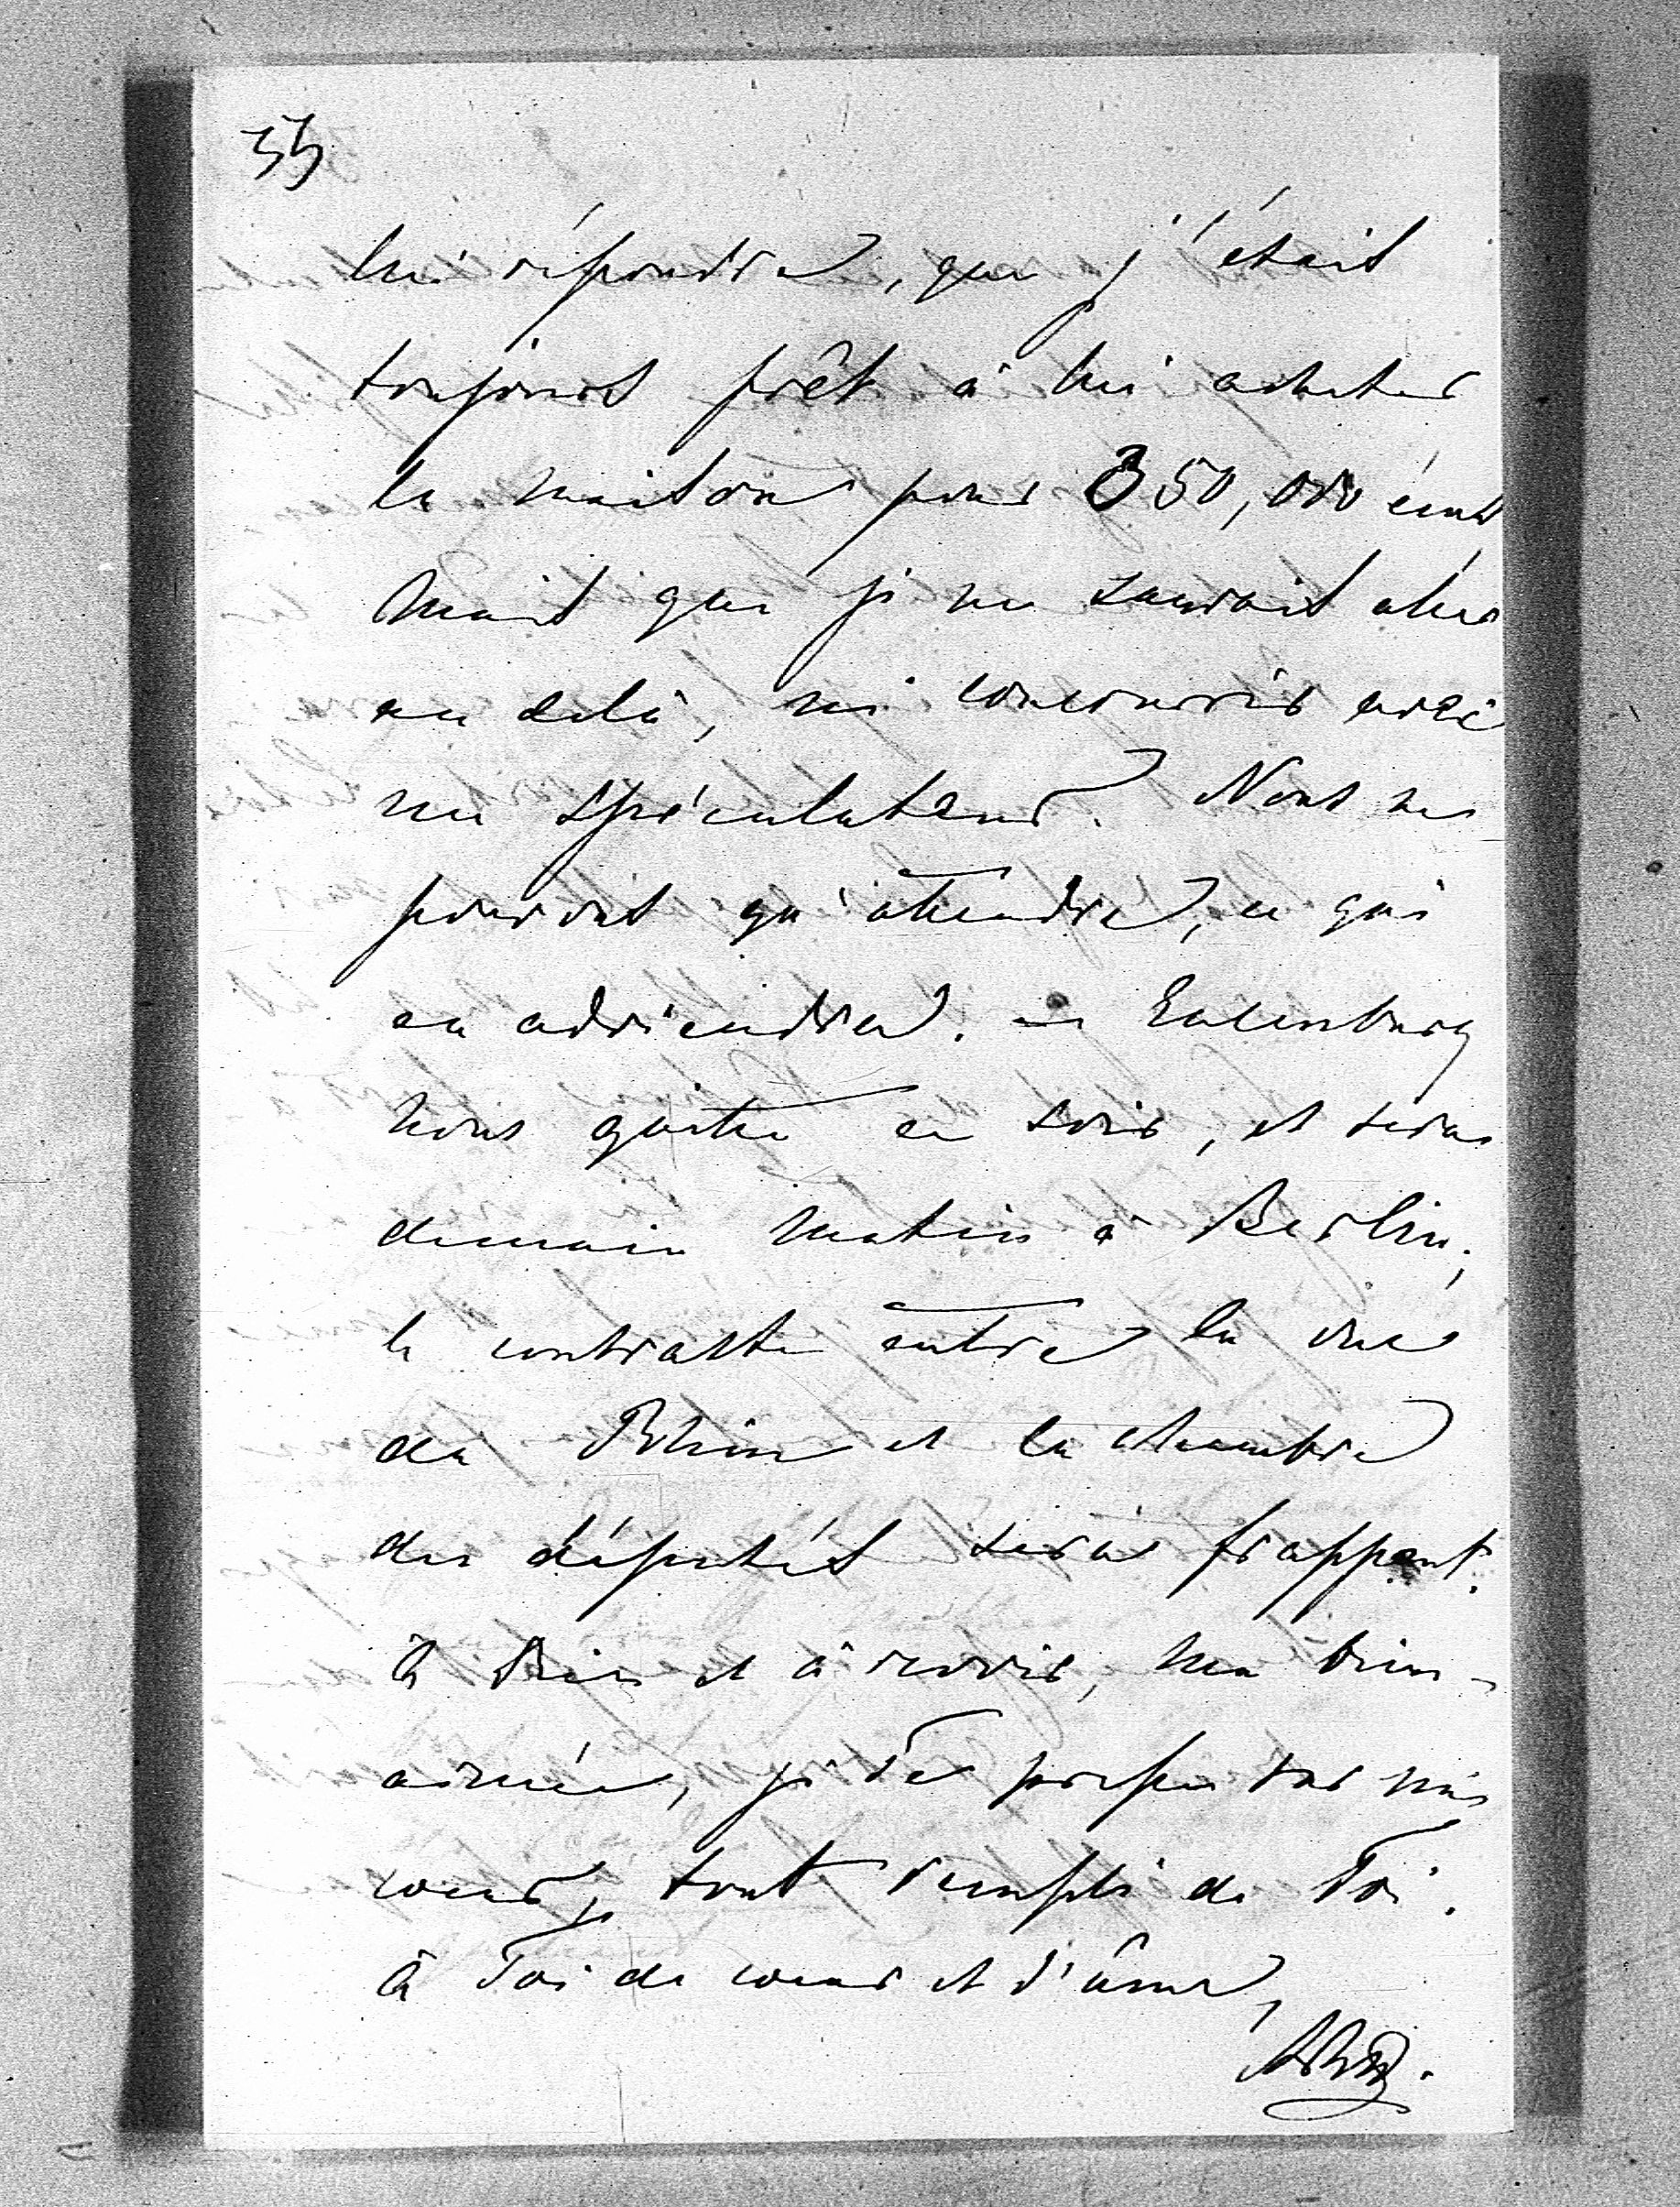 33
lui répondre, que j'étais
toujours prêt à lui acheter
la maison pour 350,000 écus,
mais que je ne saurais aller
au delà, ni concourrir avec
un spéculateur. Nous ne
pouvons qu'attendre, ce qui
en adviendra. — Eulenburg
nous quitte ce soir, et sera
demain matin à Berlin;
le contraste entre la vue
du Rhin et la chambre
des députés sera frappant.
à Dieu et à revoir, ma bien-
aimée, je Te presse sur mon
coeur, tout rempli de Toi.
à Toi de coeur et d'âme,